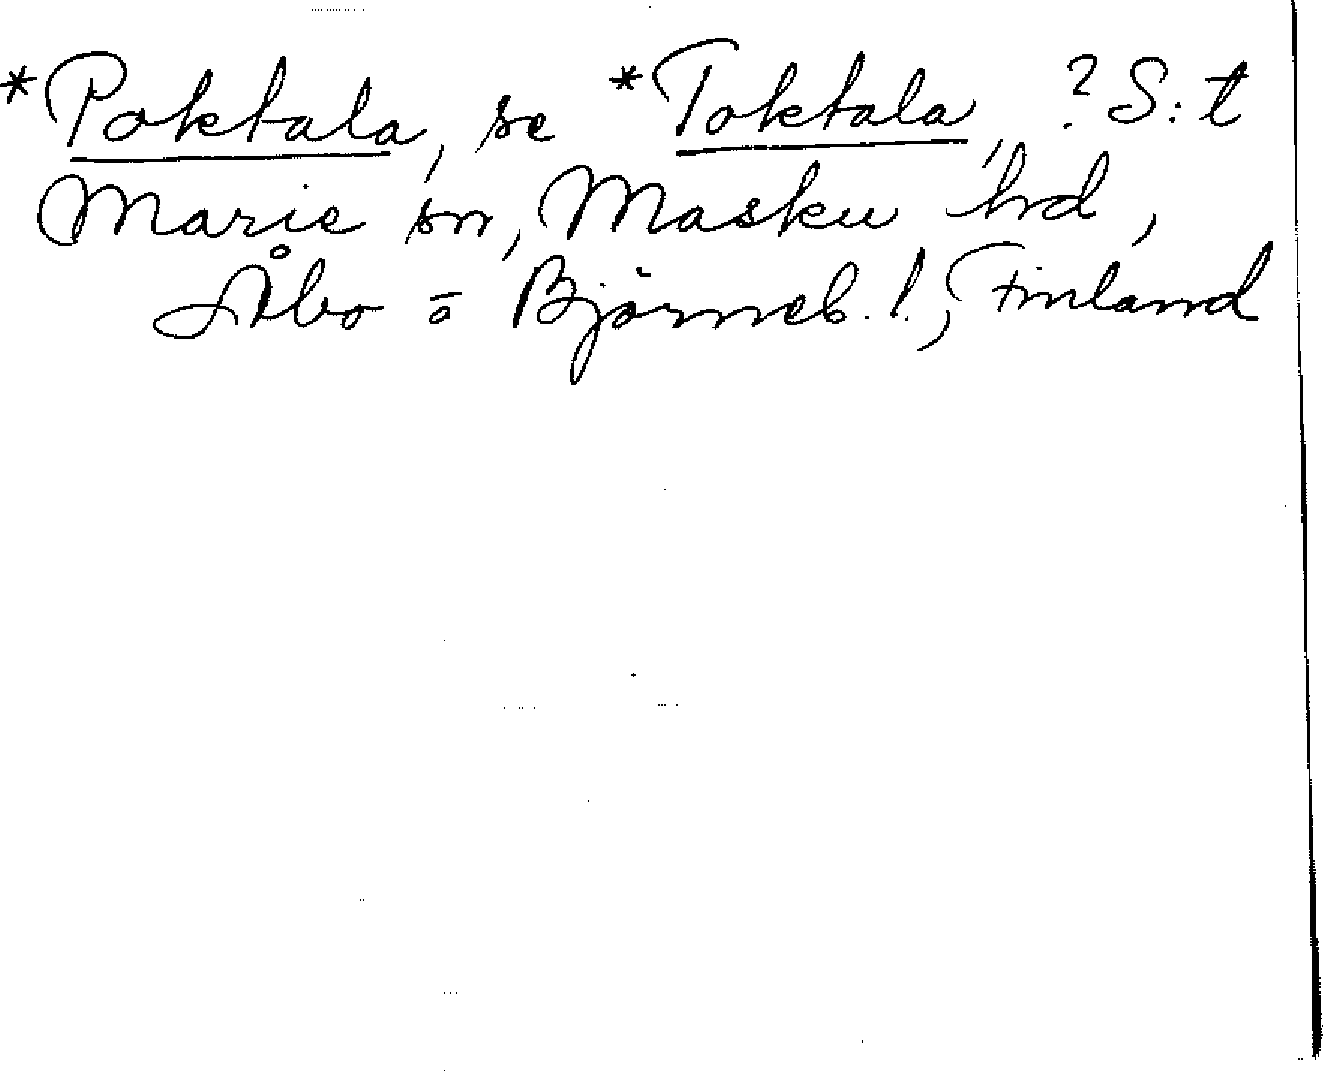 *Poktala, se *Toktala, ? S:t
Marie sn, Masku hd,
Åbo o Björneb. l., Finland